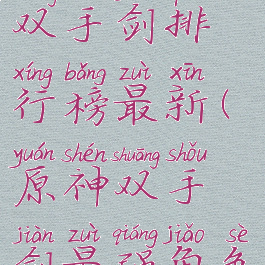 双手剑排
xíng bǎng zuì xīn
行榜最新(
yuán shén shuāng shǒu
原神双手
jiàn zuì qiáng jiǎo sè
剑最强角色